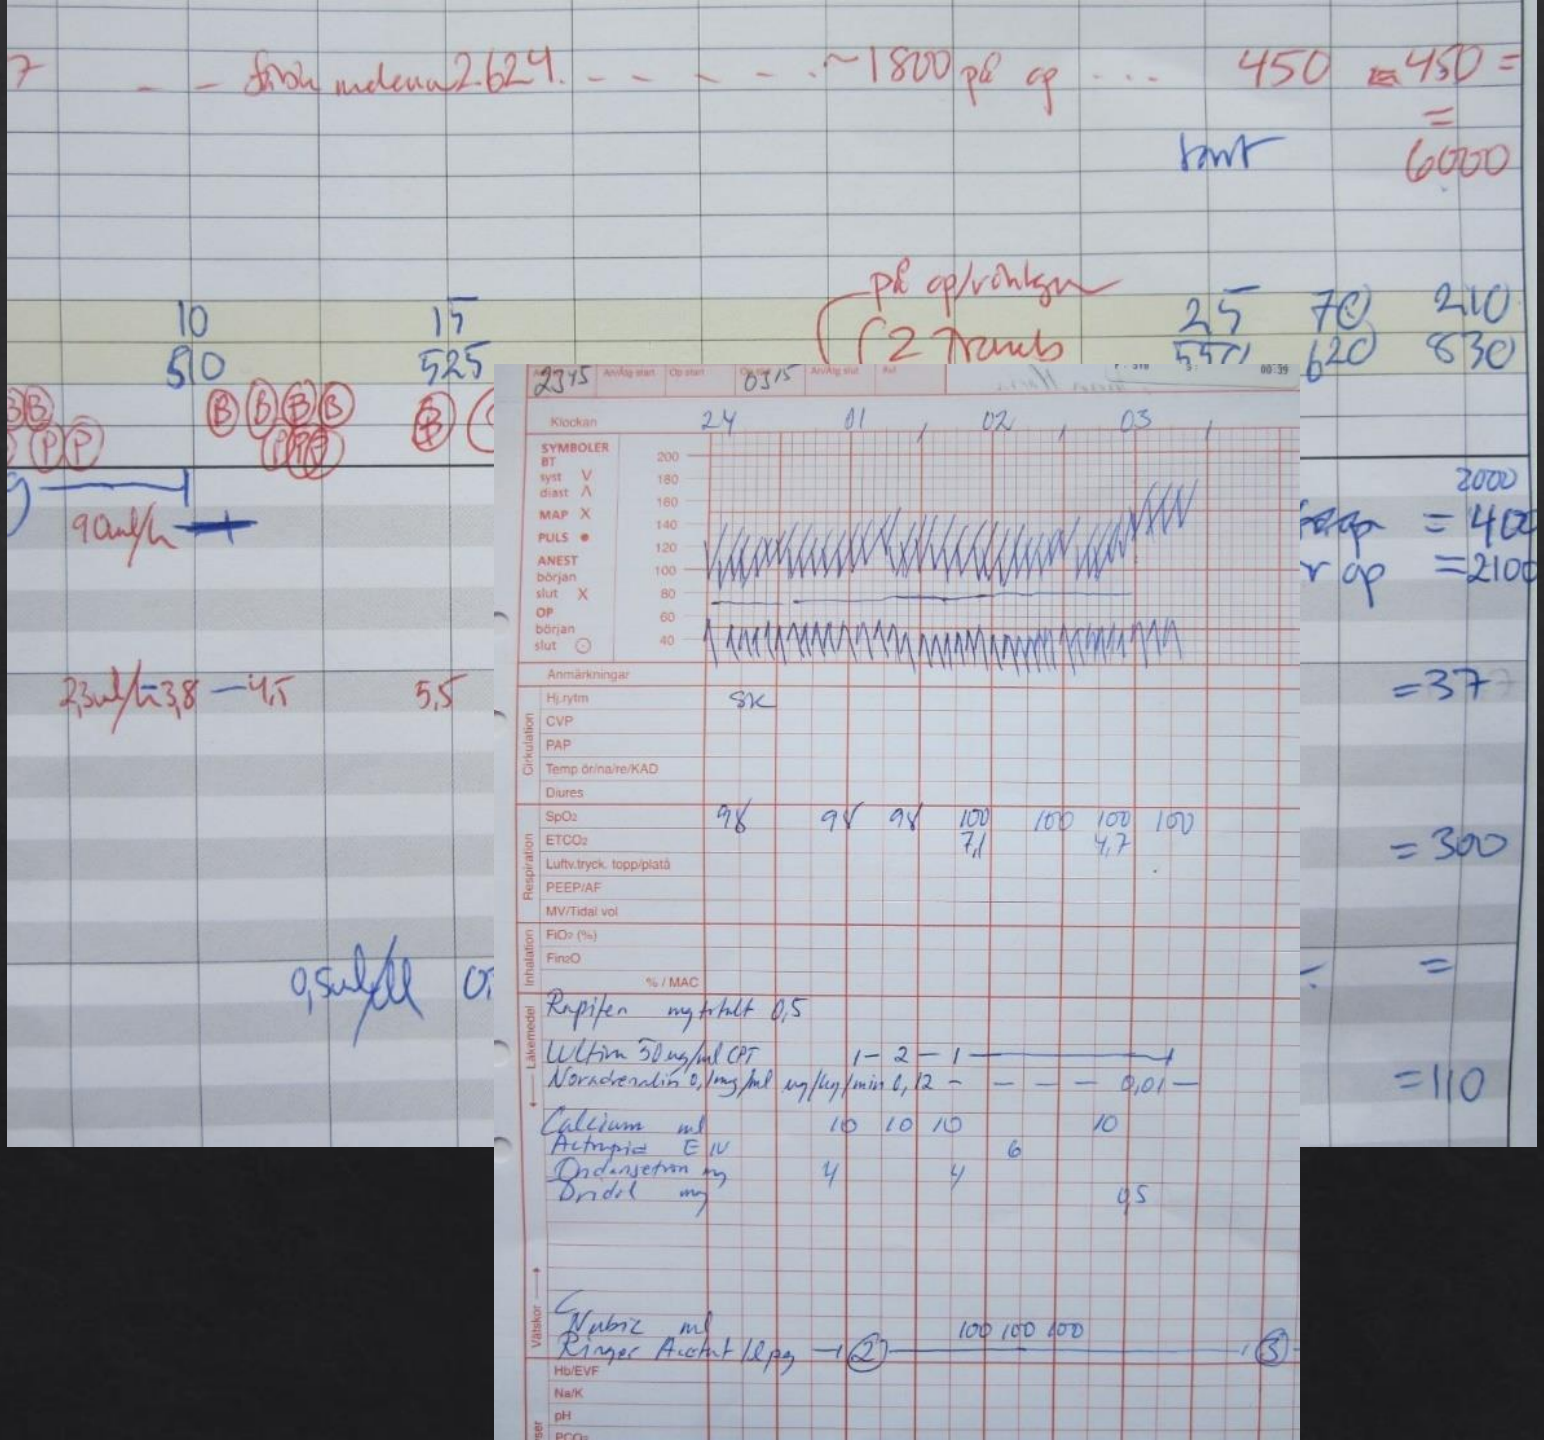 7 - - 2.624. - - - - - ~1800 på op ... 450 450 =
=
6000
på op/röntgen
10 15 25 70 210
510 525 ( 2 620 830
B B B B B B
P P P P P
2000
90ml/h = 400
op = 2100
2,3ml/h - 3,8 - 4,5 5,5 = 37
= 300
0,5ml/ 0, =
= 110
2345 An/Åtg start Op start 0315 An/Åtg slut 00:39
Klockan 24 01 02 03
SYMBOLER
BT
syst V
diast Λ
MAP X
PULS ●
ANEST
början
slut X
OP
början
slut ⊙
200
180
160
140
120
100
80
60
40
Anmärkningar
Cirkulation
Hj.rytm SR
CVP
PAP
Temp ör/na/re/KAD
Diures
Respiration
SpO2 98 98 98 100 100 100 100
ETCO2 7,1 4,7
Luftv.tryck. topp/platå
PEEP/AF
MV/Tidal vol
Inhalation
FiO2 (%)
Fin2O
% / MAC
Läkemedel
Rapifen mg totalt 0,5
Ultiva 50ug/ml CPT 1 - 2 - 1
Noradrenalin 0,1mg/ml ug/kg/min 0,12 - - - - 0,01 -
Calcium ml 10 10 10 10
Actrapid E IV 6
Ondansetron mg 4 4
Dridol mg 0,5
Vätskor
Nabic ml 100 100 100
Ringer Acetat /Lpg 2 3
Hb/EVF
Na/K
pH
PCO2